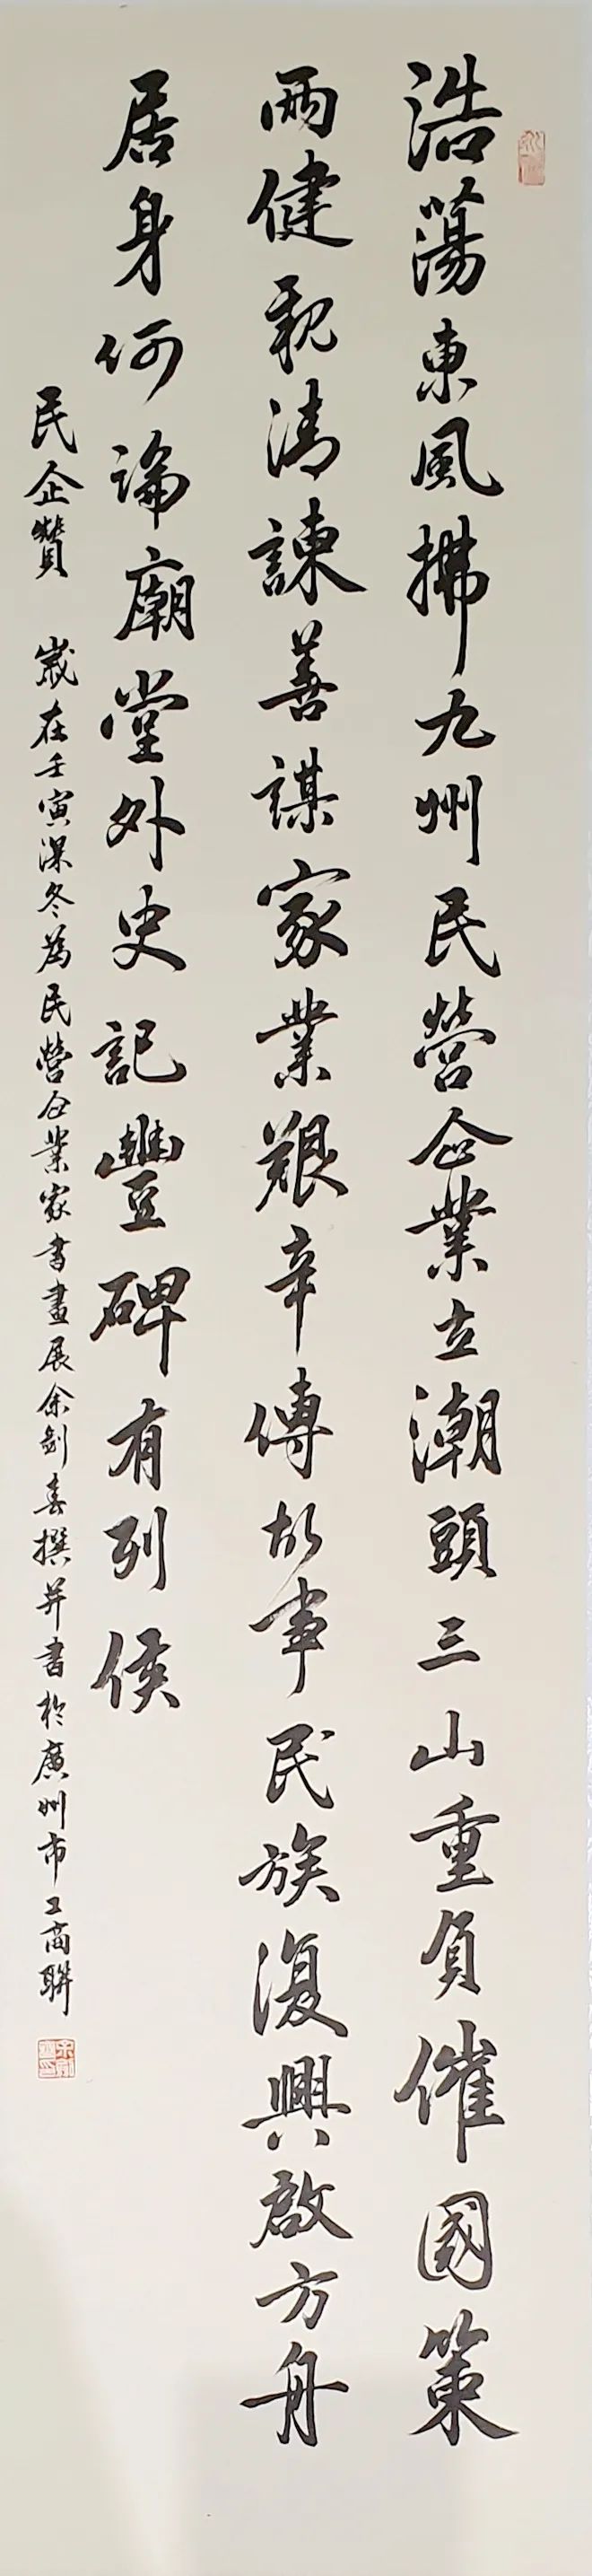 浩蕩東風拂九州民營企業立潮頭三山重負催國策
兩健親清諫善謀家業艱辛傳故事民族復興啟方舟
居身何論廟堂外史記豐碑有列侯
民企贊 歲在壬寅深冬為民營企業家書畫展余劍喜撰并書於廣州市工商聯